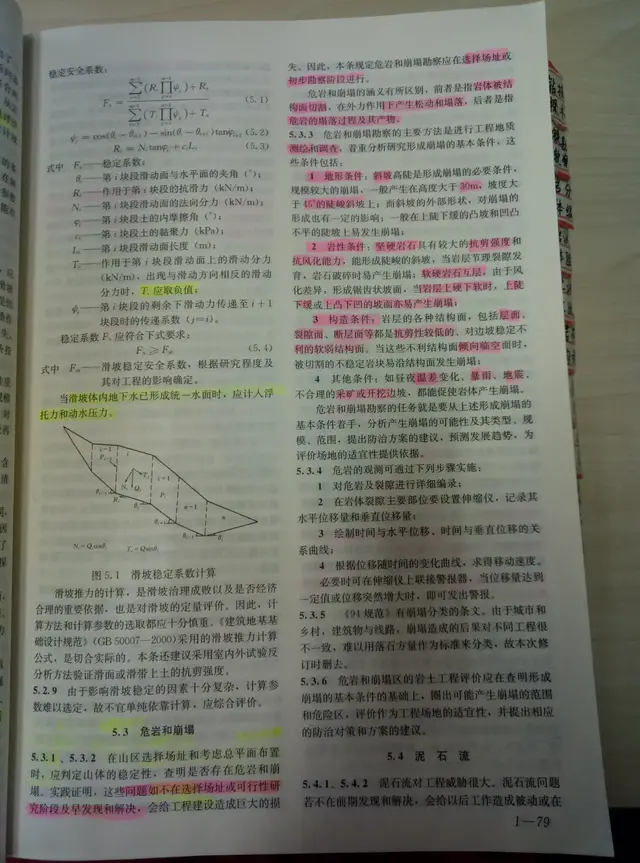 稳定安全系数:
式中 Fs——稳定系数;
θi——第 i 块段滑动面与水平面的夹角(°);
Ri——作用于第 i 块段的抗滑力(kN/m);
Ni——第 i 块段滑动面的法向分力(kN/m);
φi——第 i 块段土的内摩擦角(°);
ci——第 i 块段土的黏聚力(kPa);
Li——第 i 块段滑动面长度(m);
Ti——作用于第 i 块段滑动面上的滑动分力
(kN/m),出现与滑动方向相反的滑动
分力时,Ti 应取负值;
ψj——第 i 块段的剩余下滑动力传递至 i+1
块段时的传递系数(j=i)。
稳定系数 Fs 应符合下式要求:
Fs≥Fst (5.4)
式中 Fst——滑坡稳定安全系数,根据研究程度及
其对工程的影响确定。
当滑坡体内地下水已形成统一水面时,应计入浮
托力和动水压力。
图 5.1 滑坡稳定系数计算
滑坡推力的计算,是滑坡治理成败以及是否经济
合理的重要依据,也是对滑坡的定量评价。因此,计
算方法和计算参数的选取都应十分慎重。《建筑地基基
础设计规范》(GB 50007—2000)采用的滑坡推力计算
公式,是切合实际的。本条还建议采用室内外试验反
分析方法验证滑面或滑带上土的抗剪强度。
5.2.9 由于影响滑坡稳定的因素十分复杂,计算参
数难以选定,故不宜单纯依靠计算,应综合评价。
5.3 危岩和崩塌
5.3.1、5.3.2 在山区选择场址和考虑总平面布置
时,应判定山体的稳定性,查明是否存在危岩和崩
塌。实践证明,这些问题如不在选择场址或可行性研
究阶段及早发现和解决,会给工程建设造成巨大的损
失。因此,本条规定危岩和崩塌勘察应在选择场址或
初步勘察阶段进行。
危岩和崩塌的涵义有所区别,前者是指岩体被结
构面切割,在外力作用下产生松动和塌落,后者是指
危岩的塌落过程及其产物。
5.3.3 危岩和崩塌勘察的主要方法是进行工程地质
测绘和调查,着重分析研究形成崩塌的基本条件,这
些条件包括:
1 地形条件:斜坡高陡是形成崩塌的必要条件,
规模较大的崩塌,一般产生在高度大于30m,坡度大
于45°的陡峻斜坡上;而斜坡的外部形状,对崩塌的
形成也有一定的影响;一般在上陡下缓的凸坡和凹凸
不平的陡坡上易发生崩塌;
2 岩性条件:坚硬岩石具有较大的抗剪强度和
抗风化能力,能形成陡峻的斜坡,当岩层节理裂隙发
育,岩石破碎时易产生崩塌;软硬岩石互层,由于风
化差异,形成锯齿状坡面,当岩层上硬下软时,上陡
下缓或上凸下凹的坡面亦易产生崩塌;
3 构造条件:岩层的各种结构面,包括层面、
裂隙面、断层面等都是抗剪性较低的、对边坡稳定不
利的软弱结构面。当这些不利结构面倾向临空面时,
被切割的不稳定岩块易沿结构面发生崩塌;
4 其他条件:如昼夜温差变化、暴雨、地震、
不合理的采矿或开挖边坡,都能促使岩体产生崩塌。
危岩和崩塌勘察的任务就是要从上述形成崩塌的
基本条件着手,分析产生崩塌的可能性及其类型、规
模、范围,提出防治方案的建议,预测发展趋势,为
评价场地的适宜性提供依据。
5.3.4 危岩的观测可通过下列步骤实施:
1 对危岩及裂隙进行详细编录;
2 在岩体裂隙主要部位要设置伸缩仪,记录其
水平位移量和垂直位移量;
3 绘制时间与水平位移、时间与垂直位移的关
系曲线;
4 根据位移随时间的变化曲线,求得移动速度。
必要时可在伸缩仪上联接警报器,当位移量达到
一定值或位移突然增大时,即可发出警报。
5.3.5 《94 规范》有崩塌分类的条文。由于城市和
乡村,建筑物与线路,崩塌造成的后果对不同工程很
不一致,难以用落石方量作为标准来分类,故本次修
订时删去。
5.3.6 危岩和崩塌区的岩土工程评价应在查明形成
崩塌的基本条件的基础上,圈出可能产生崩塌的范围
和危险区,评价作为工程场地的适宜性,并提出相应
的防治对策和方案的建议。
5.4 泥石流
5.4.1、5.4.2 泥石流对工程威胁很大。泥石流问题
若不在前期发现和解决,会给以后工作造成被动或在
1—79